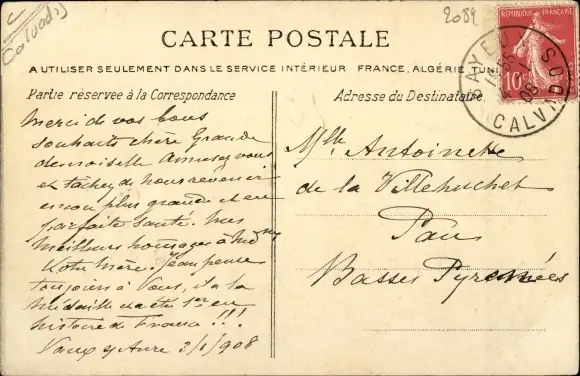 Calvados
2084
CARTE POSTALE
A UTILISER SEULEMENT DANS LE SERVICE INTÉRIEUR FRANCE, ALGÉRIE, TUNI
Partie réservée à la Correspondance
Adresse du Destinataire
RÉPUBLIQUE FRANÇAISE
10
BAYEUX
08
CALVADOS
Merci de vos bons
souhaits chère Grande
demoiselle Amusez vous
et tachez de nous revenir
encor plus grande et en
parfaite santé. Mes
meilleurs hommages à Mme
Votre Mère. Jean pense
toujours à Vous, il a la
médaille 1er en
histoire de France !!!
Vaux s/ Aure 2/1/908
Mlle Antoinette
de la Villehuchet
Pau
Basses Pyrenées